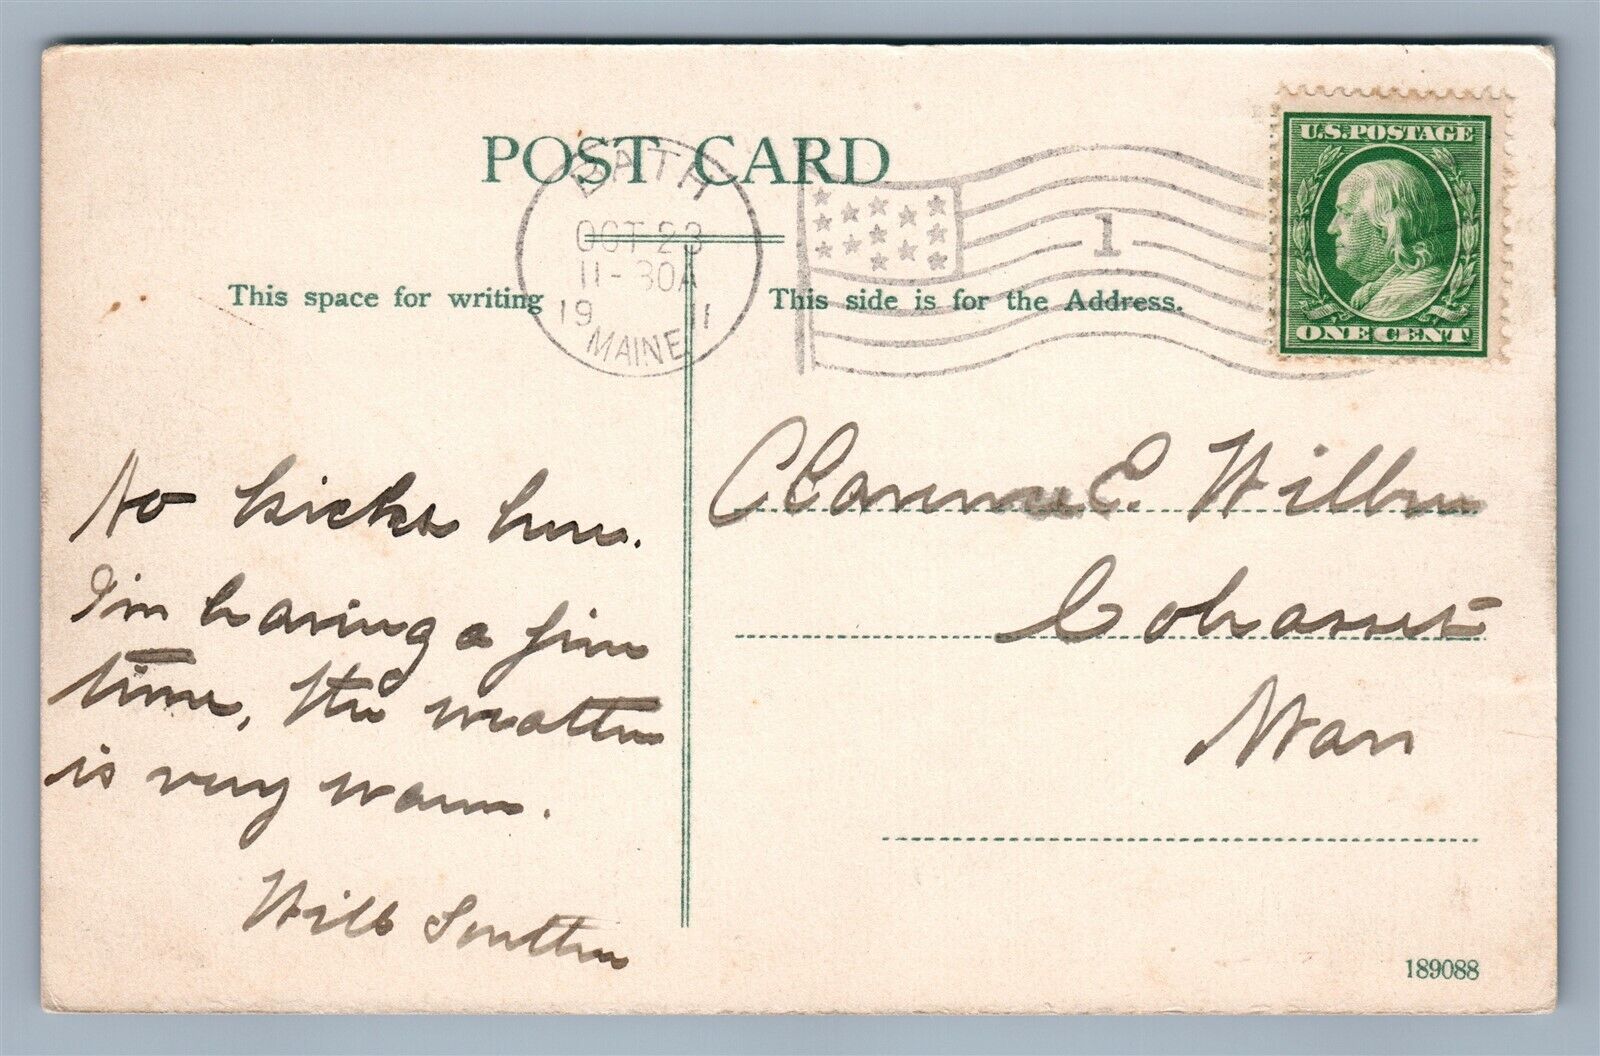 POST CARD
BATH
OCT 23
11-30A
19 11
MAINE
1
U.S. POSTAGE
ONE CENT
This space for writing
This side is for the Address.
No kicks here.
I'm having a fine
time, the weather
is very warm.
Will
Clarence E. Wilbur
Cohasset
Mass
189088